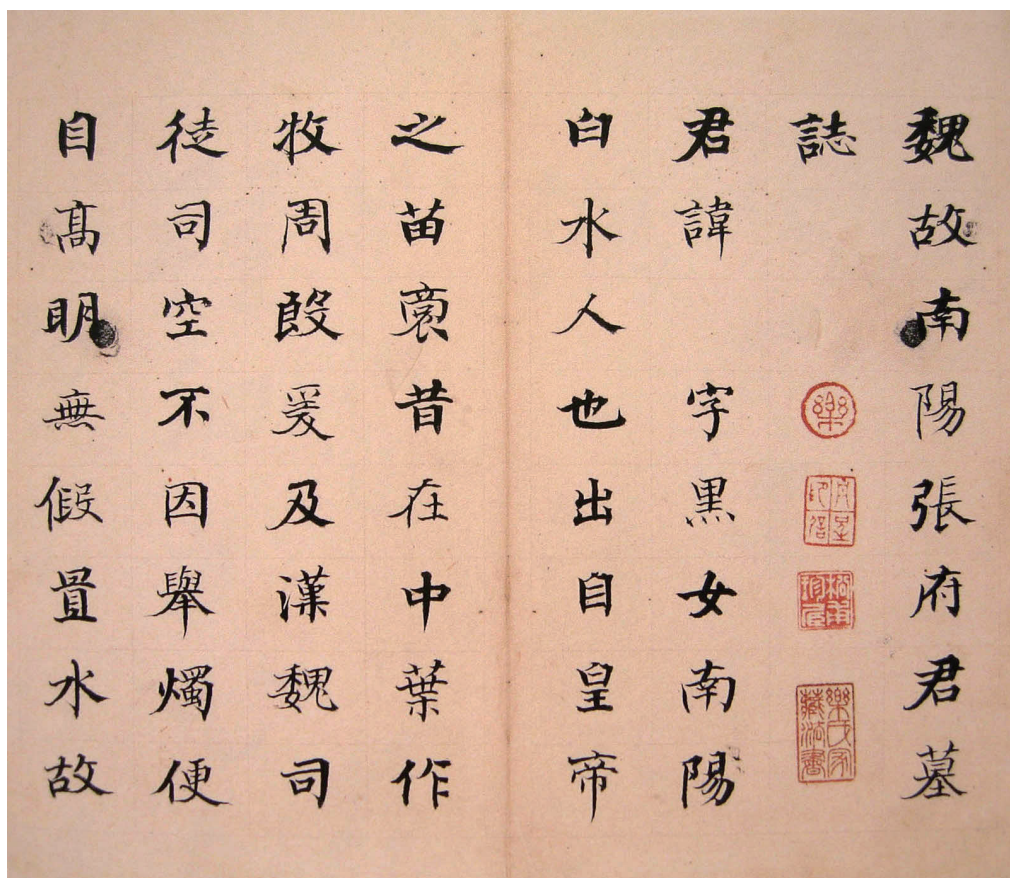 魏故南陽張府君墓
誌
樂
君諱 字黑女南陽
白水人也出自皇帝
之苗裔昔在中葉作
牧周殷爰及漢魏司
徒司空不因舉燭便
自髙明無假置水故